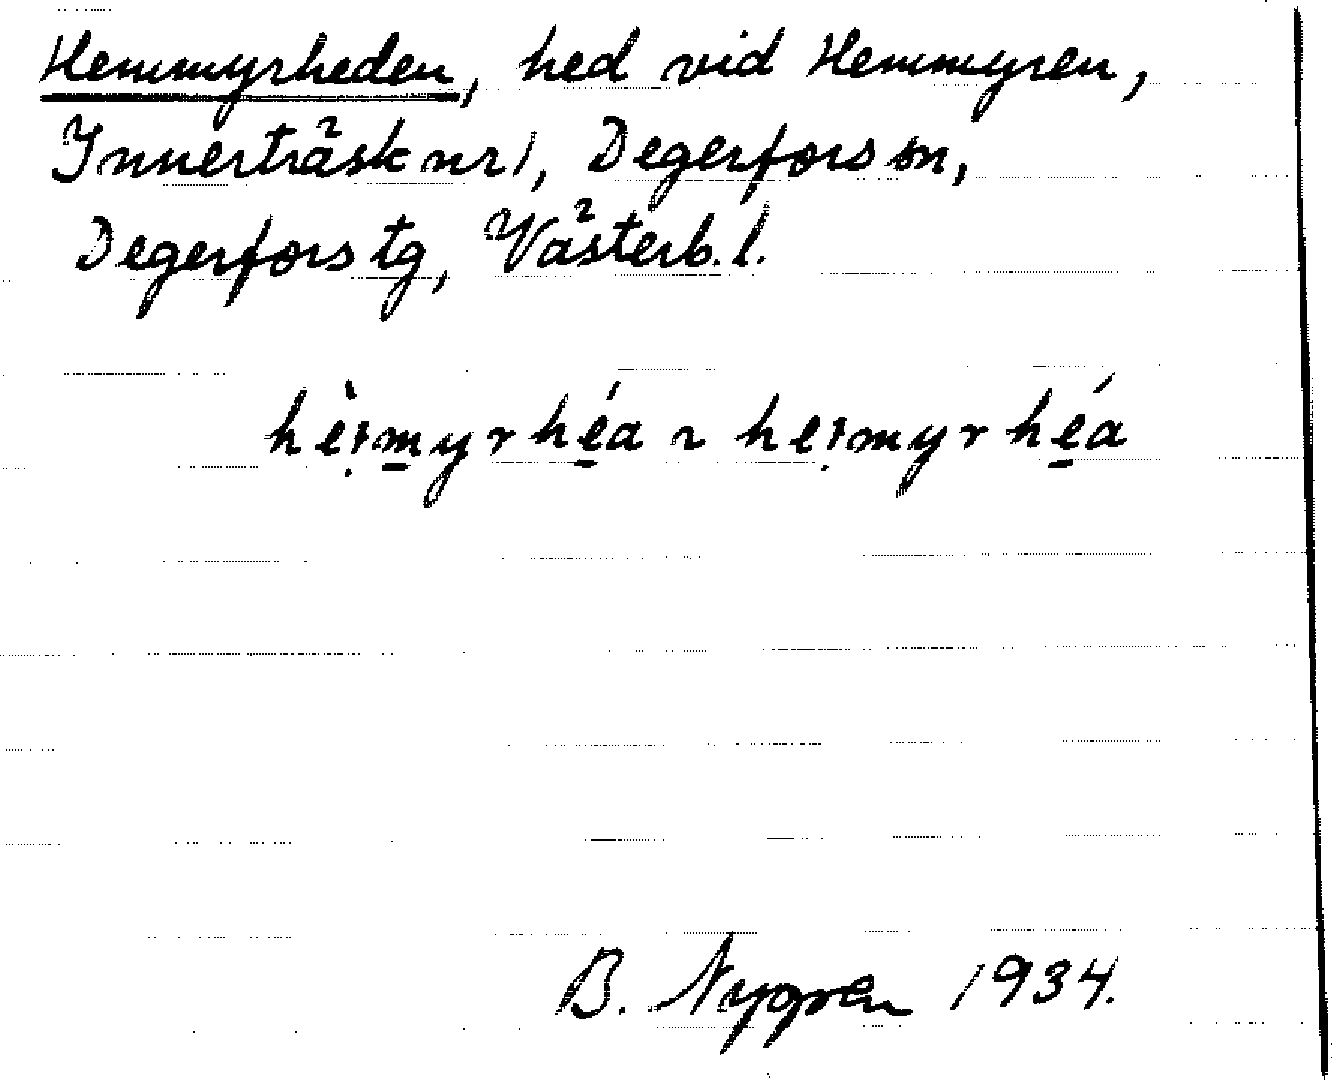 Hemmyrheden, hed vid Hemmyren,
Innerträsk nr 1, Degerfors sn,
Degerfors tg, Västerb. l.
hèi̩m̱yrhé̱a ~ hei̩myrhé̱a
B. Nygren 1934.